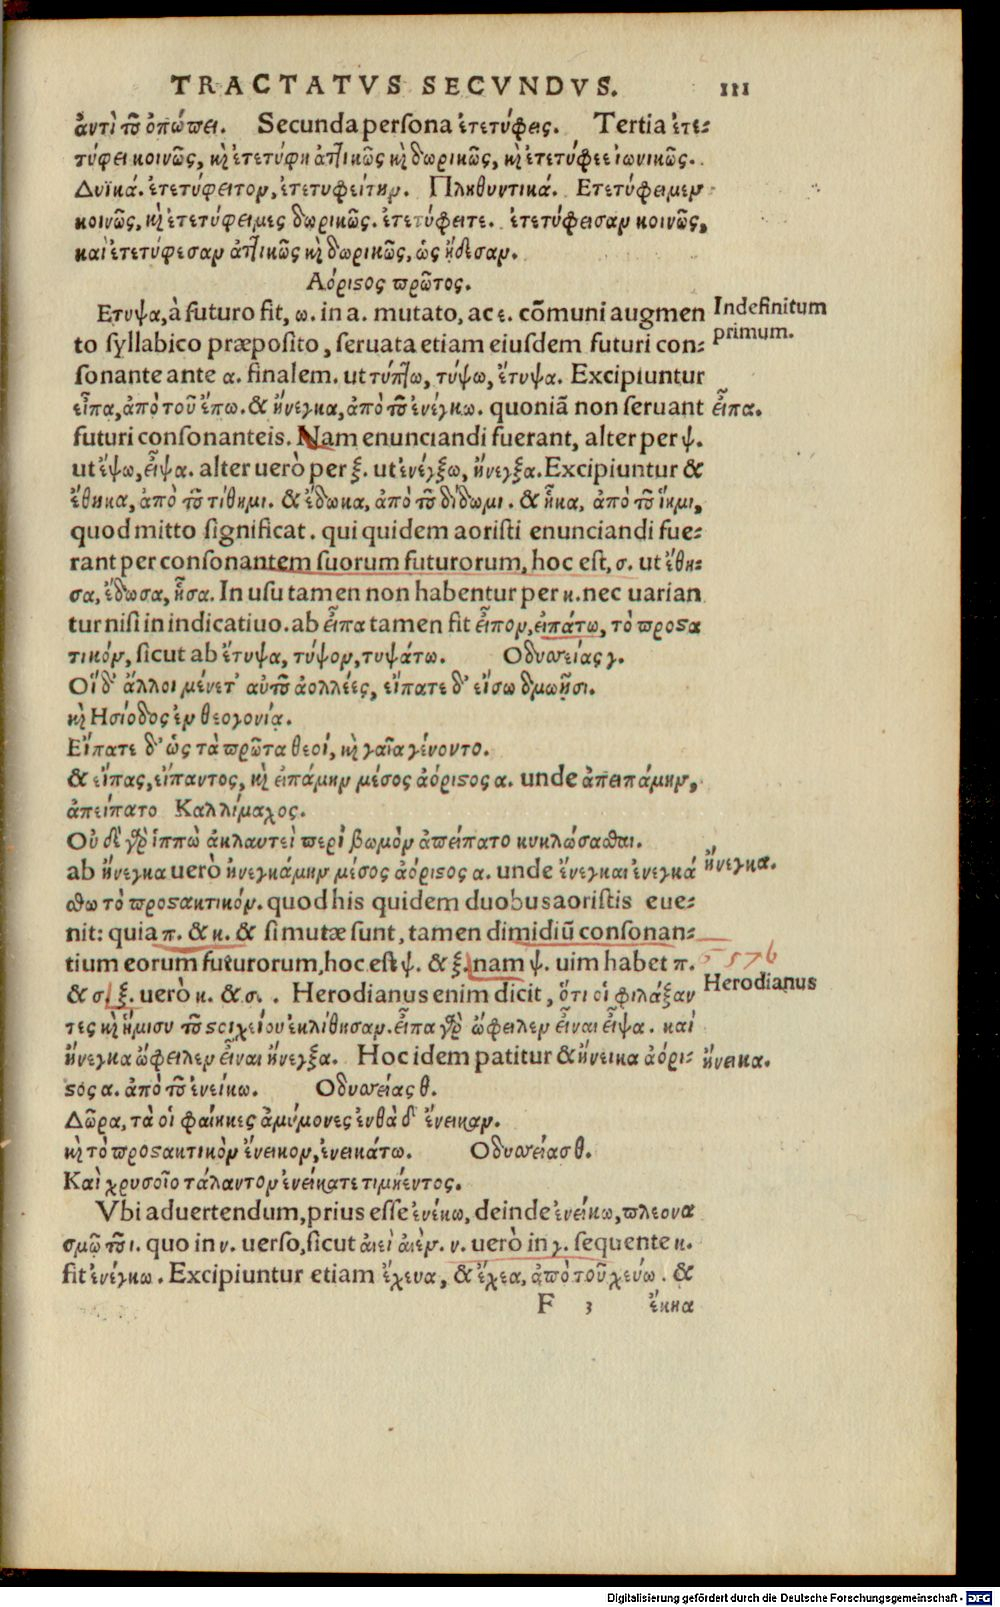 TRACTATVS SECVNDVS. 111
ἀντὶ τοῦ ὀπώπει. Secunda persona ἐτετύφεις. Tertia ἐτε-
τύφει κοινῶς, καὶ ἐτετύφη ἀττικῶς καὶ δωρικῶς, καὶ ἐτετύφεε ἰωνικῶς.
Δυϊκά. ἐτετύφειτον, ἐτετυφείτην. Πληθυντικά. Ετετύφειμεν
κοινῶς, καὶ ἐτετύφειμες δωρικῶς. ἐτετύφειτε. ἐτετύφεισαν κοινῶς,
καὶ ἐτετύφεσαν ἀττικῶς καὶ δωρικῶς, ὡς ᾔδεσαν.
Αόριστος πρῶτος.
Ετυψα, à futuro fit, ω. in α. mutato, ac ε. cõmuni augmen Indefinitum
to syllabico præposito, seruata etiam eiusdem futuri con- primum.
sonante ante α. finalem. ut τύπτω, τύψω, ἔτυψα. Excipiuntur
εἶπα, ἀπὸ τοῦ ἔπω. & ἤνεγκα, ἀπὸ τοῦ ἐνέγκω. quoniã non seruant εἶπα.
futuri consonanteis. Nam enunciandi fuerant, alter per ψ.
ut ἔψω, εἶψα. alter uerò per ξ. ut ἐνέγξω, ἤνεγξα. Excipiuntur &
ἔθηκα, ἀπὸ τοῦ τίθημι. & ἔδωκα, ἀπὸ τοῦ δίδωμι. & ἧκα, ἀπὸ τοῦ ἵημι,
quod mitto significat. qui quidem aoristi enunciandi fue-
rant per consonantem suorum futurorum, hoc est, σ. ut ἔθη-
σα, ἔδωσα, ἧσα. In usu tamen non habentur per κ. nec uarian
tur nisi in indicatiuo. ab εἶπα tamen fit εἶπον, εἰπάτω, τὸ προστα
τικόν, sicut ab ἔτυψα, τύψον, τυψάτω. Οδυσσείας γ.
Οἱ δ' ἄλλοι μένετ' αὐτοῦ ἀολλέες, εἴπατε δ' εἴσω δμωῇσι.
καὶ Ησίοδος ἐν θεογονίᾳ.
Εἴπατε δ' ὡς τὰ πρῶτα θεοί, καὶ γαῖα γένοντο.
& εἴπας, εἴπαντος, καὶ εἰπάμην μέσος ἀόριστος α. unde ἀπειπάμην,
ἀπείπατο Καλλίμαχος.
Οὐ δὲ γὰρ ἱππὼ ἀκλαυτεὶ περὶ βωμὸν ἀπείπατο κυκλώσασθαι.
ab ἤνεγκα uerò ἠνεγκάμην μέσος ἀόριστος α. unde ἔνεγκαι ἐνεγκά ἤνεγκα.
σθω τὸ προστακτικόν. quod his quidem duobus aoristis eue-
nit: quia π. & κ. & si mutæ sunt, tamen dimidiũ consonan-
tium eorum futurorum, hoc est ψ. & ξ. nam ψ. uim habet π. 576
& σ. ξ. uerò κ. & σ. . Herodianus enim dicit, ὅτι οἱ φιλάξαν Herodianus
τες καὶ ἥμισυ τοῦ στοιχείου ἐκλίθησαν. εἶπα γὰρ ὤφειλεν εἶναι εἶψα. καὶ
ἤνεγκα ὤφειλεν εἶναι ἤνεγξα. Hoc idem patitur & ἤνεικα ἀόρι- ἤνεικα.
στος α. ἀπὸ τοῦ ἐνείκω. Οδυσσείας θ.
Δῶρα, τὰ οἱ φαίηκες ἀμύμονες ἐνθὰ δ' ἔνεικαν.
καὶ τὸ προστακτικὸν ἔνεικον, ἐνεικάτω. Οδυσσείασ θ.
Καὶ χρυσοῖο τάλαντον ἐνείκατε τιμήεντος.
Vbi aduertendum, prius esse ἐνέκω, deinde ἐνείκω, πλεονα
σμῷ τοῦ ι. quo in ν. uerso, sicut ἀιεὶ ἀιέν. ν. uerò in γ. sequente κ.
fit ἐνέγκω. Excipiuntur etiam ἔχευα, & ἔχεα, ἀπὸ τοῦ χεύω. &
F 3 ἔκηα
Digitalisierung gefördert durch die Deutsche Forschungsgemeinschaft - DFG